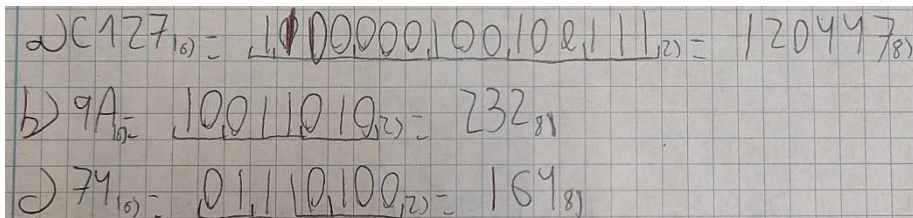 a) C127₁₆₎ = 1100000100100111₂₎ = 120447₈₎
b) 9A₁₆₎ = 10011010₂₎ = 232₈₎
c) 74₁₆₎ = 01110100₂₎ = 164₈₎